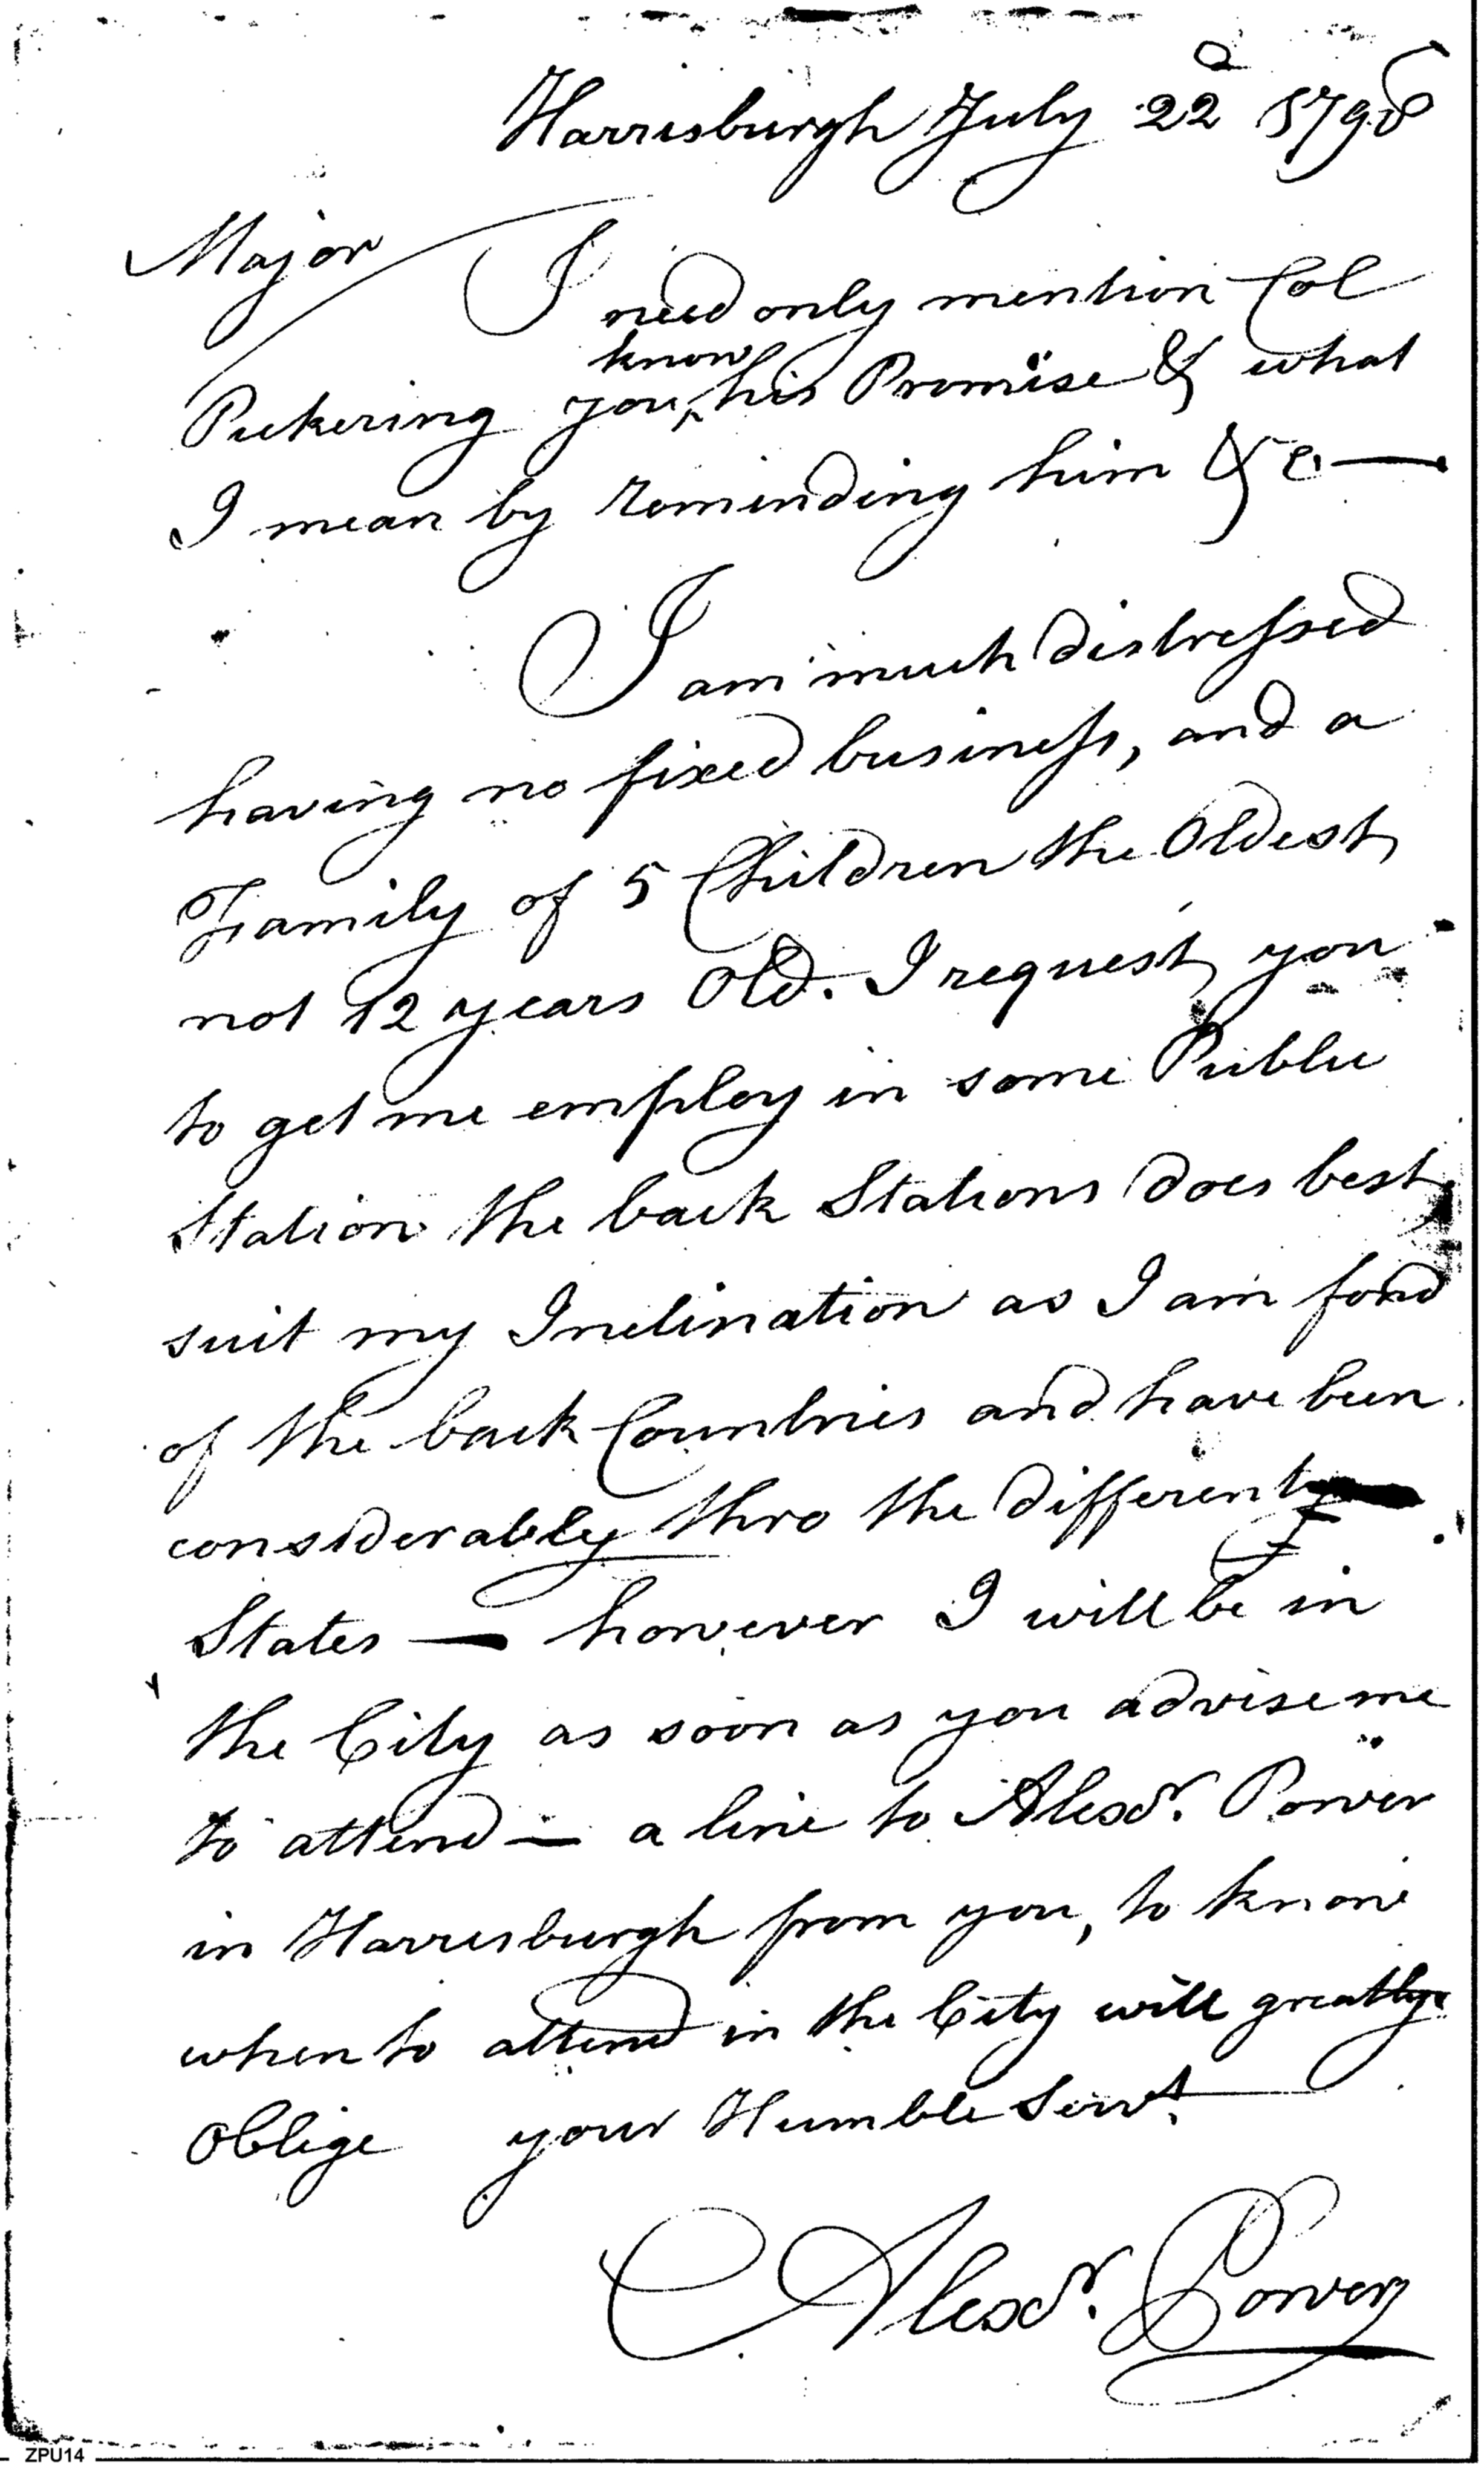 Harrisburgh July 22d 1798
Major
I need only mention Col
Pickering you know his Promise & what
I mean by reminding him &c. —
I am much distressed
having no fixed business, and a
Family of 5 Children the Oldest
not 12 years Old. I request you
to get me employ in some Public
Station the back Stations does best
suit my Inclination as I am fond
of the back Countries and have been
considerably thro the different
States — however I will be in
the City as soon as you advise me
to attend — a line to Alexdr. Power
in Harrisburgh from you, to know
when to attend in the City will greatly
Oblige your Humble Servt.
Alexdr. Power
ZPU14